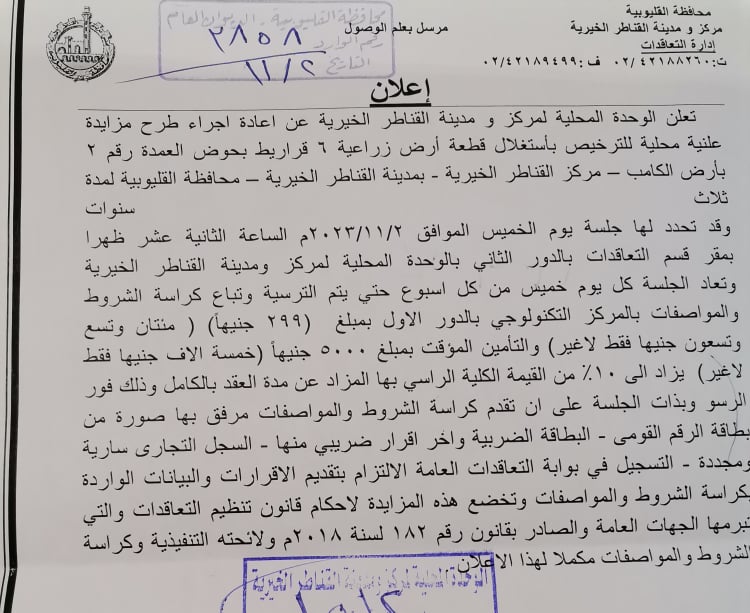 محافظة القليوبية
مركز و مدينة القناطر الخيرية
إدارة التعاقدات
ت: ٠٢/٤٢١٨٨٢٦٠ ف: ٠٢/٤٢١٨٩٤٩٩
مرسل بعلم الوصول
محافظة القليوبية - الديوان العام
رقم الوارد ٣٨٥٨
التاريخ ١١/٢
إعلان
تعلن الوحدة المحلية لمركز و مدينة القناطر الخيرية عن اعادة اجراء طرح مزايدة
علنية محلية للترخيص بأستغلال قطعة أرض زراعية ٦ قراريط بحوض العمدة رقم ٢
بأرض الكامب – مركز القناطر الخيرية - بمدينة القناطر الخيرية – محافظة القليوبية لمدة
ثلاث سنوات
وقد تحدد لها جلسة يوم الخميس الموافق ٢٠٢٣/١١/٢م الساعة الثانية عشر ظهرا
بمقر قسم التعاقدات بالدور الثاني بالوحدة المحلية لمركز ومدينة القناطر الخيرية
وتعاد الجلسة كل يوم خميس من كل اسبوع حتي يتم الترسية وتباع كراسة الشروط
والمواصفات بالمركز التكنولوجي بالدور الاول بمبلغ (٢٩٩ جنيهاً) ( مئتان وتسع
وتسعون جنيها فقط لاغير) والتأمين المؤقت بمبلغ ٥٠٠٠ جنيهاً (خمسة الاف جنيها فقط
لاغير) يزاد الى ١٠٪ من القيمة الكلية الراسي بها المزاد عن مدة العقد بالكامل وذلك فور
الرسو وبذات الجلسة على ان تقدم كراسة الشروط والمواصفات مرفق بها صورة من
بطاقة الرقم القومى - البطاقة الضربية واخر اقرار ضريبي منها - السجل التجارى سارية
ومجددة - التسجيل في بوابة التعاقدات العامة الالتزام بتقديم الاقرارات والبيانات الواردة
بكراسة الشروط والمواصفات وتخضع هذه المزايدة لاحكام قانون تنظيم التعاقدات والتي
تبرمها الجهات العامة والصادر بقانون رقم ١٨٢ لسنة ٢٠١٨م ولائحته التنفيذية وكراسة
الشروط والمواصفات مكملا لهذا الاعلان
الوحدة المحلية لمركز ومدينة القناطر الخيرية